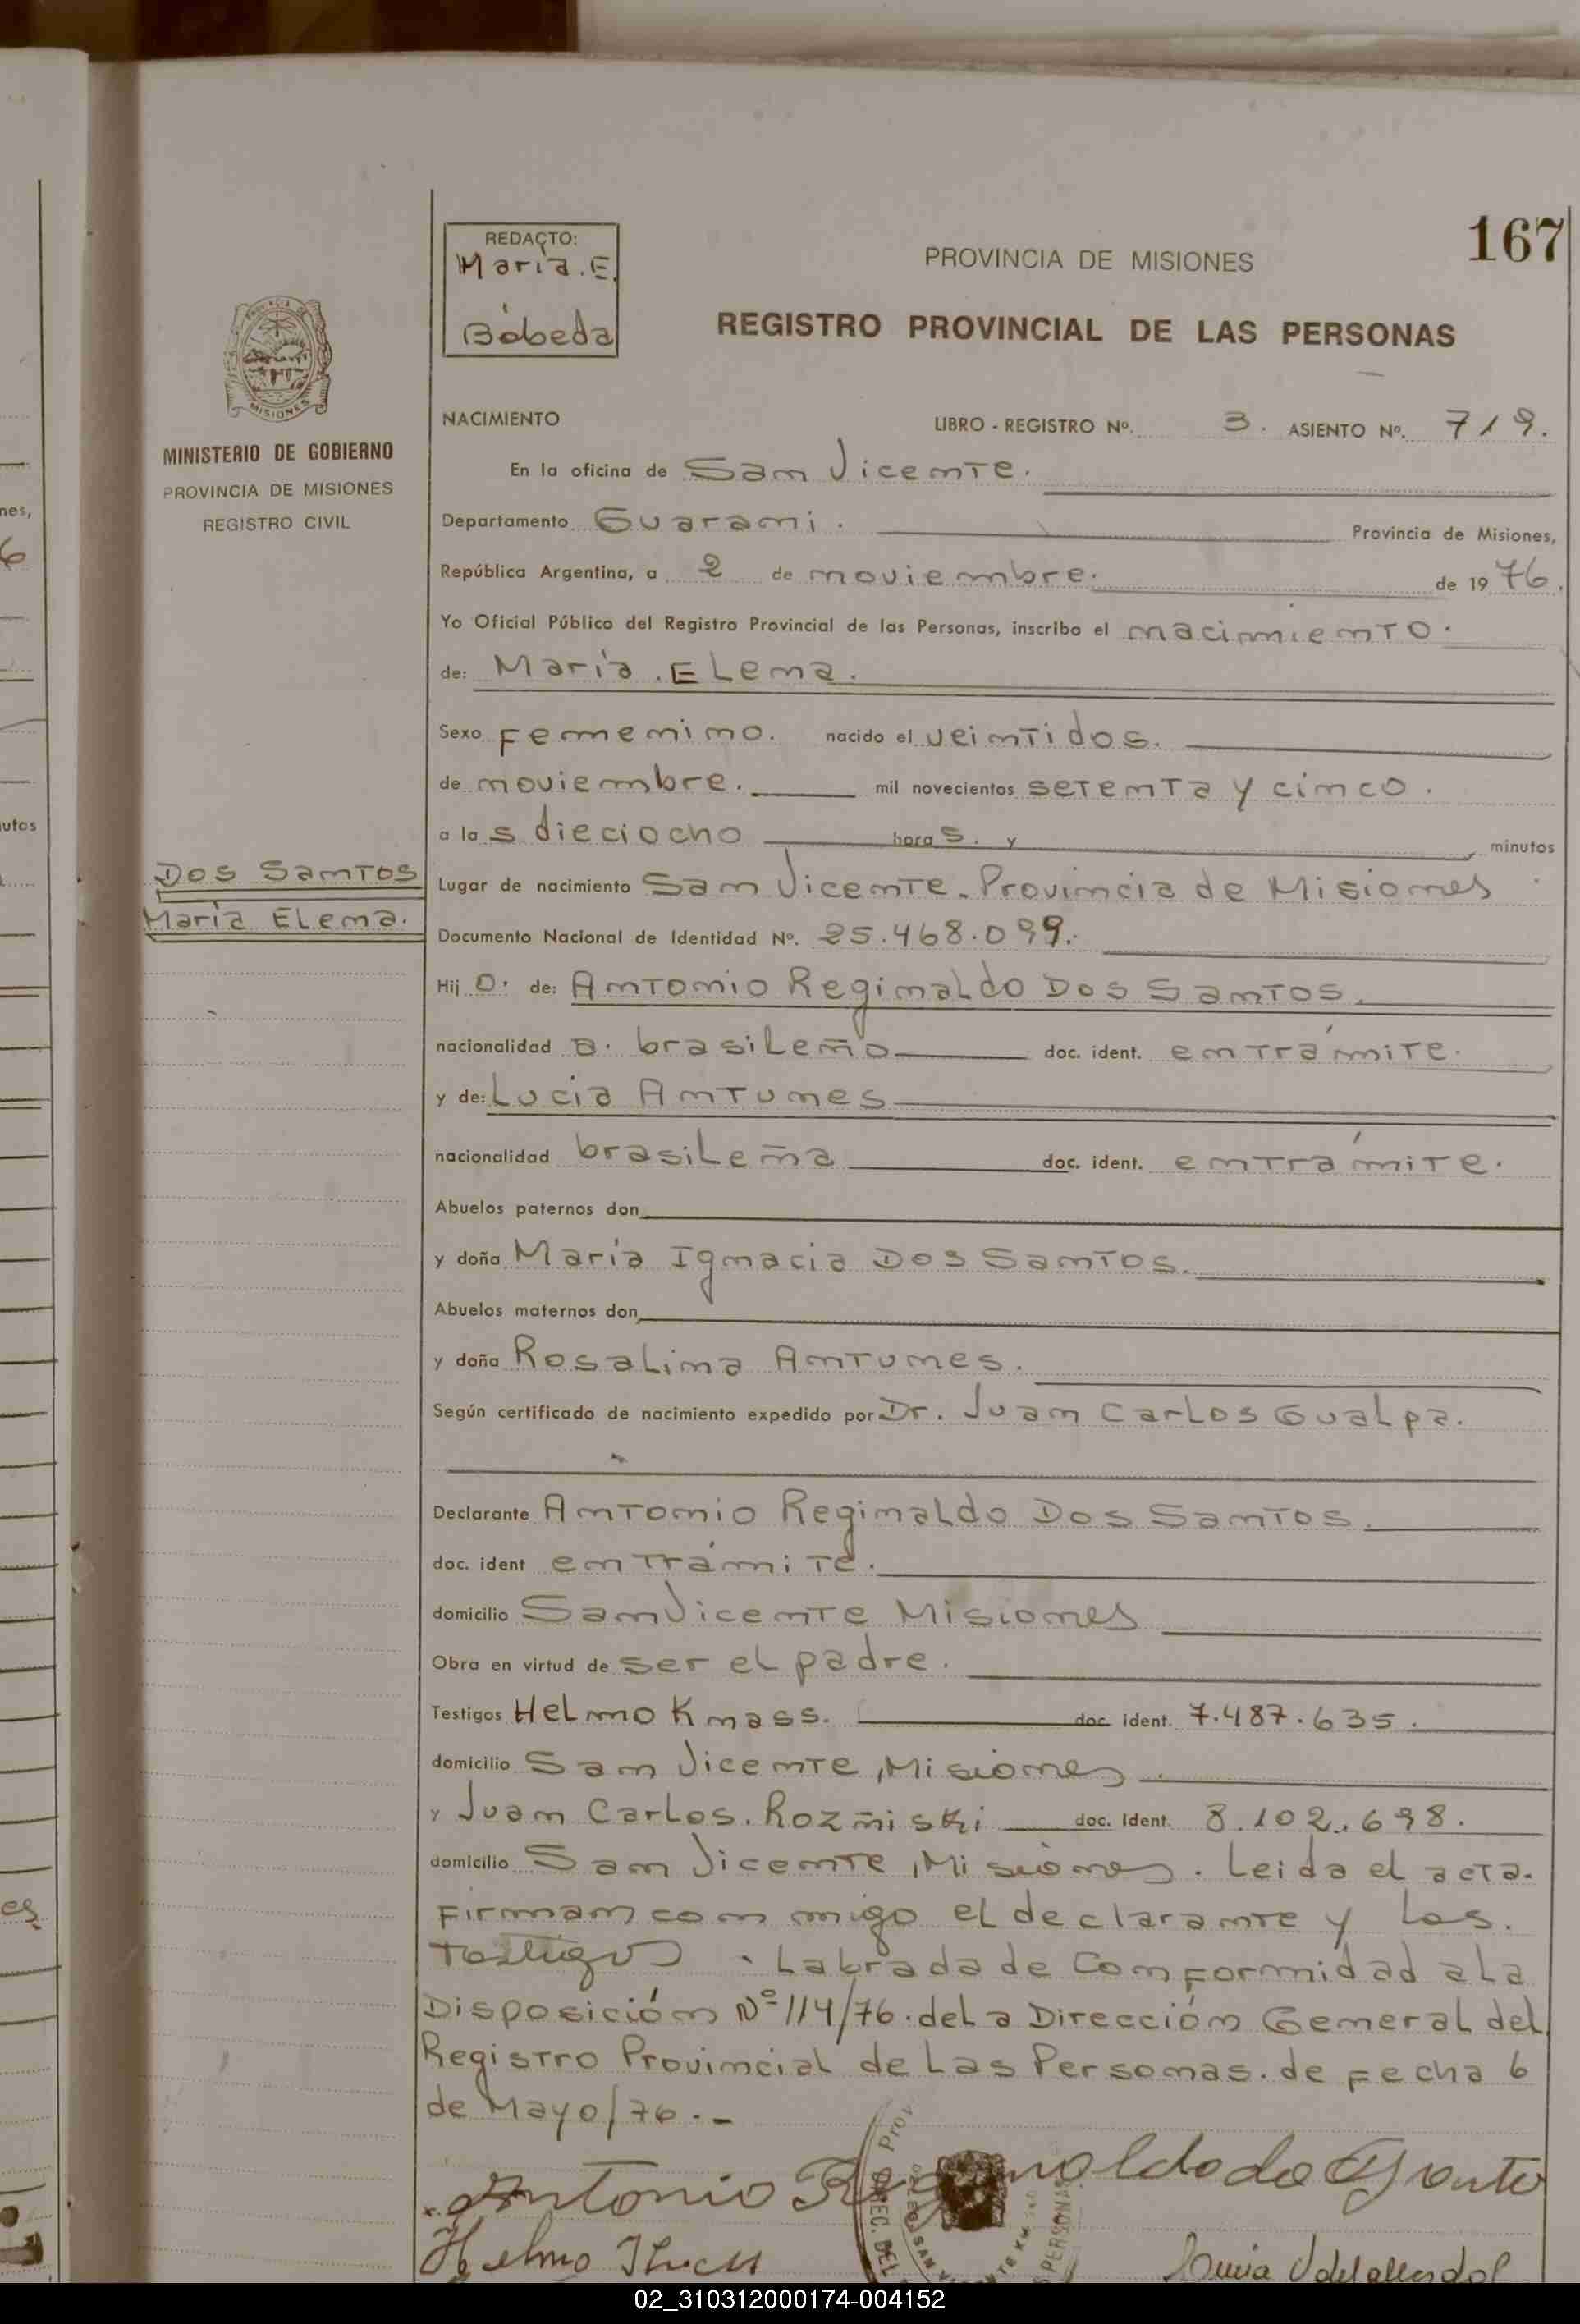 167
REDACTO:
María. E.
Bóbeda
PROVINCIA DE MISIONES
REGISTRO PROVINCIAL DE LAS PERSONAS
MISIONES
MINISTERIO DE GOBIERNO
PROVINCIA DE MISIONES
REGISTRO CIVIL
NACIMIENTO LIBRO - REGISTRO Nº. 3. ASIENTO Nº. 719.
En la oficina de San Vicente.
Departamento Guarani. Provincia de Misiones,
República Argentina, a 2 de noviembre. de 1976.
Yo Oficial Público del Registro Provincial de las Personas, inscribo el nacimiento.
de: María. Elena.
Sexo femenino. nacido el veintidos.
de noviembre. mil novecientos setenta y cinco.
a las dieciocho horas. y minutos
Dos Santos
María Elena.
Lugar de nacimiento San Vicente. Provincia de Misiones
Documento Nacional de Identidad Nº. 25.468.099.
Hij a. de: Antonio Reginaldo Dos Santos.
nacionalidad a. brasileño doc. ident. en trámite.
y de: Lucia Antunes
nacionalidad brasileña doc. ident. en trámite.
Abuelos paternos don
y doña María Ignacia Dos Santos.
Abuelos maternos don
y doña Rosalina Antunes.
Según certificado de nacimiento expedido por Dr. Juan Carlos Gualpa.
Declarante Antonio Reginaldo Dos Santos.
doc. ident en trámite.
domicilio San Vicente Misiones
Obra en virtud de ser el padre.
Testigos Helmo Knass. doc ident. 7.487.635.
domicilio San Vicente, Misiones.
y Juan Carlos. Rozñiski doc. ident. 8.102.698.
domicilio San Vicente, Misiones. Leida el acta.
Firman con migo el declarante y los.
Testigos. Labrada de Conformidad a la
Disposición Nº 114/76. de la Dirección General del
Registro Provincial de Las Personas. de Fecha 6
de Mayo/76.-
Antonio Reginaldo do Santo
Helmo
02_310312000174-004152